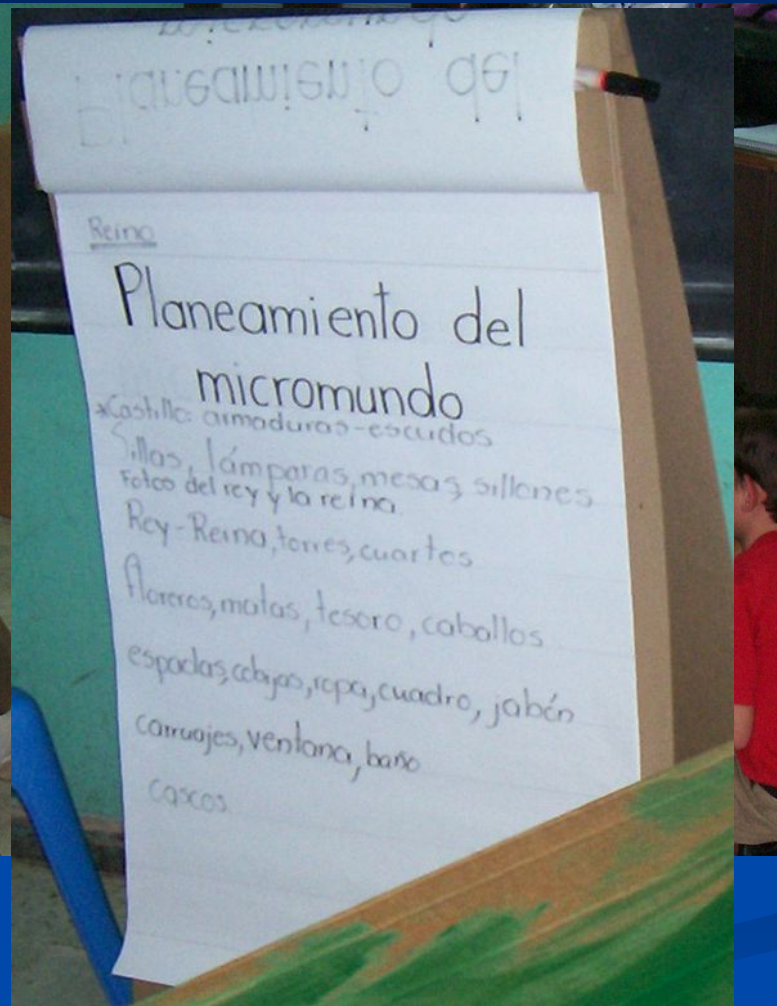 Planeamiento del
Reino
Planeamiento del
micromundo
*Castillo: armaduras-escudos
Sillas, lámparas, mesas, sillones
Fotos del rey y la reina
Rey-Reina, torres, cuartos
floreros, matas, tesoro, caballos
espadas, cobijas, ropa, cuadro, jabón
carruajes, ventana, baño
cascos